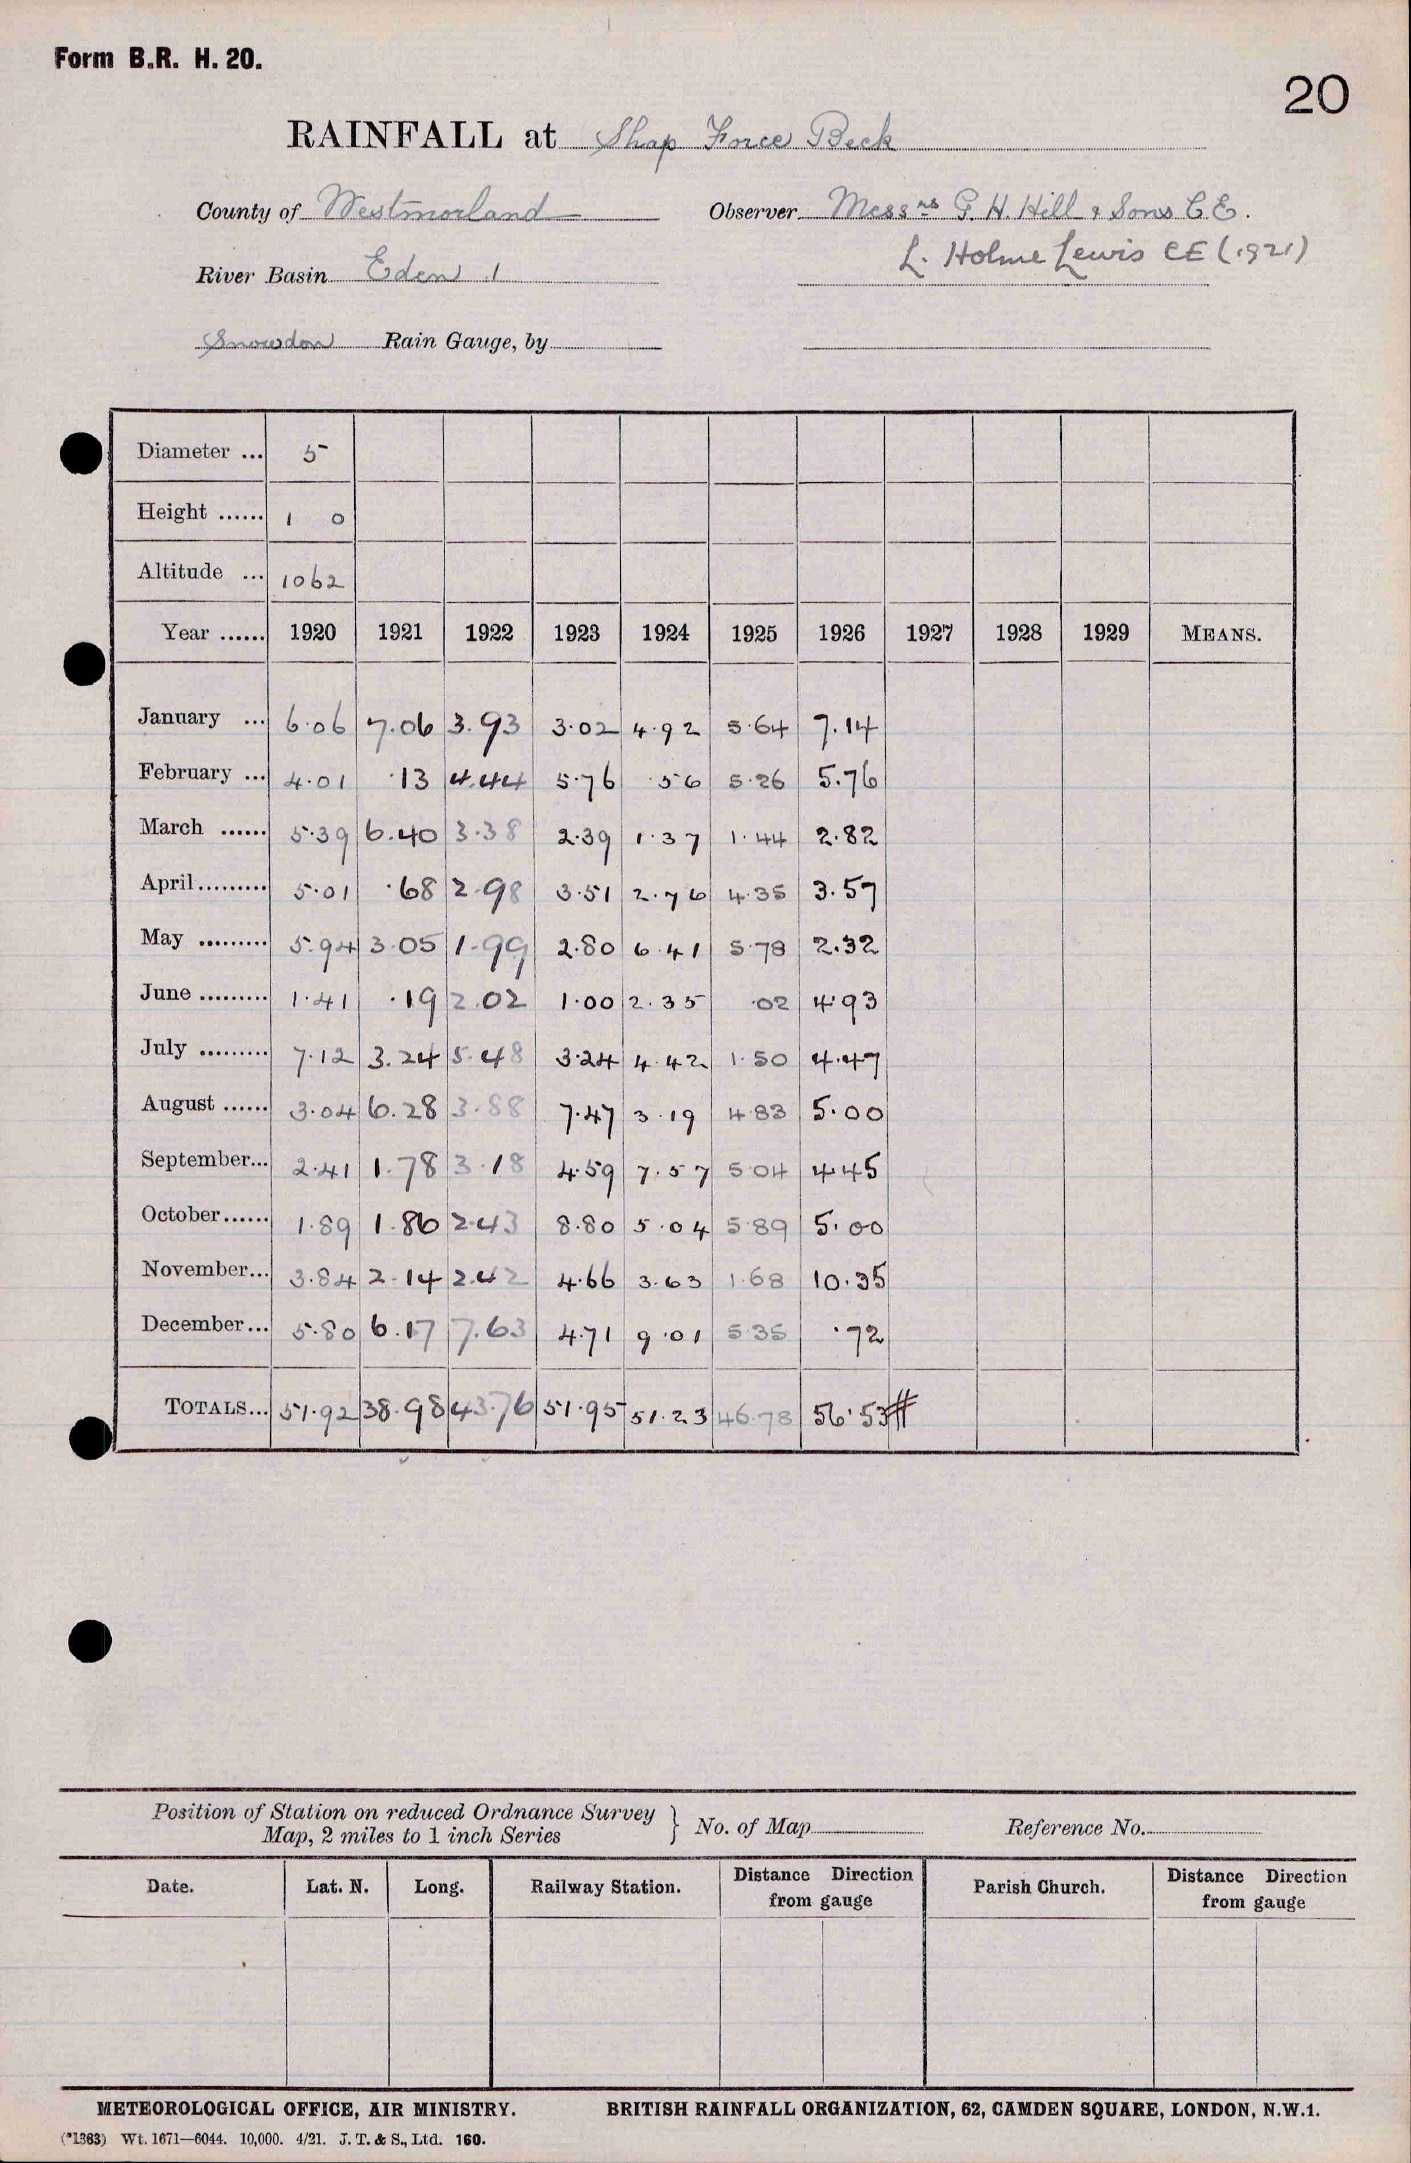 Form B.R. H. 20.
20
RAINFALL at Shap Force Beck
County of Westmorland Observer Messrs G. H. Hill & Sons C.E.
L. Holme Lewis CE (1921)
River Basin Eden 1
Snowdon Rain Gauge, by
Diameter ... 5
Height ...... 1 0
Altitude ... 1062
Year ...... 1920 1921 1922 1923 1924 1925 1926 1927 1928 1929 MEANS.
January ... 6.06 7.06 3.93 3.02 4.92 5.64 7.14
February ... 4.01 .13 4.44 5.76 .56 5.26 5.76
March ...... 5.39 6.40 3.38 2.39 1.37 1.44 2.82
April ......... 5.01 .68 2.98 3.51 2.76 4.35 3.57
May ......... 5.94 3.05 1.99 2.80 6.41 5.78 2.32
June ......... 1.41 .19 2.02 1.00 2.35 .02 4.93
July ......... 7.12 3.24 5.48 3.24 4.42 1.50 4.47
August ...... 3.04 6.28 3.88 7.47 3.19 4.83 5.00
September... 2.41 1.78 3.18 4.59 7.57 5.04 4.45
October...... 1.89 1.86 2.43 8.80 5.04 5.89 5.00
November... 3.84 2.14 2.42 4.66 3.63 1.68 10.35
December... 5.80 6.17 7.63 4.71 9.01 5.35 .72
TOTALS... 51.92 38.98 43.76 51.95 51.23 46.78 56.53#
Position of Station on reduced Ordnance Survey
Map, 2 miles to 1 inch Series } No. of Map Reference No.
Date. Lat. N. Long. Railway Station. Distance Direction from gauge Parish Church. Distance Direction from gauge
METEOROLOGICAL OFFICE, AIR MINISTRY. BRITISH RAINFALL ORGANIZATION, 62, CAMDEN SQUARE, LONDON, N.W.1.
(*1363) Wt. 1671—6044. 10,000. 4/21. J. T. & S., Ltd. 160.